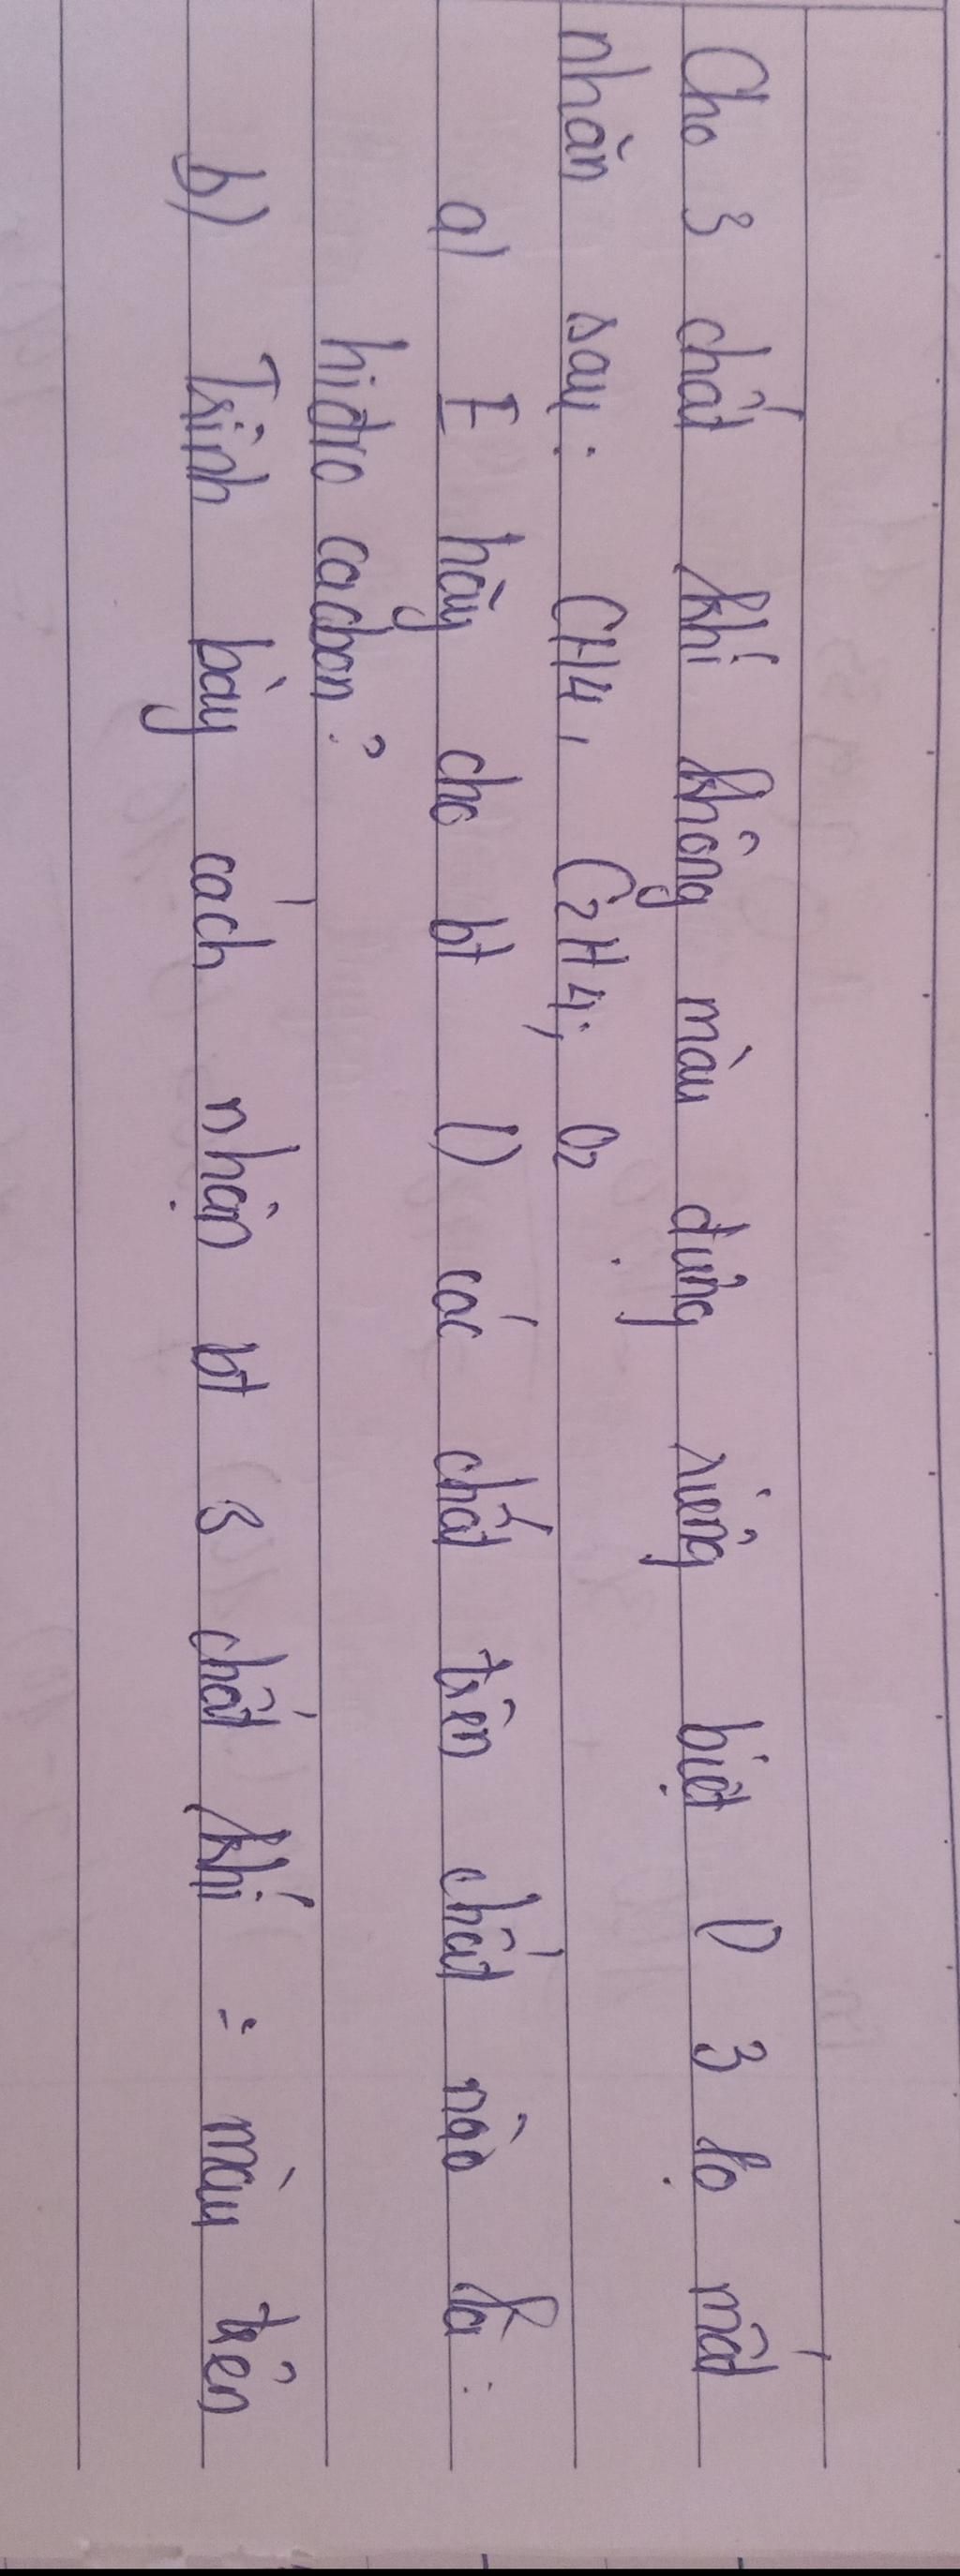 Cho 3 chất khí không màu đựng riêng biệt () 3 lọ mất
nhãn sau: CH4, C2H4; O2
a) E hãy cho bt () các chất trên chất nào là:
hiđro cacbon?
b) Trình bày cách nhận bt 3 chất khí ÷ màu trên